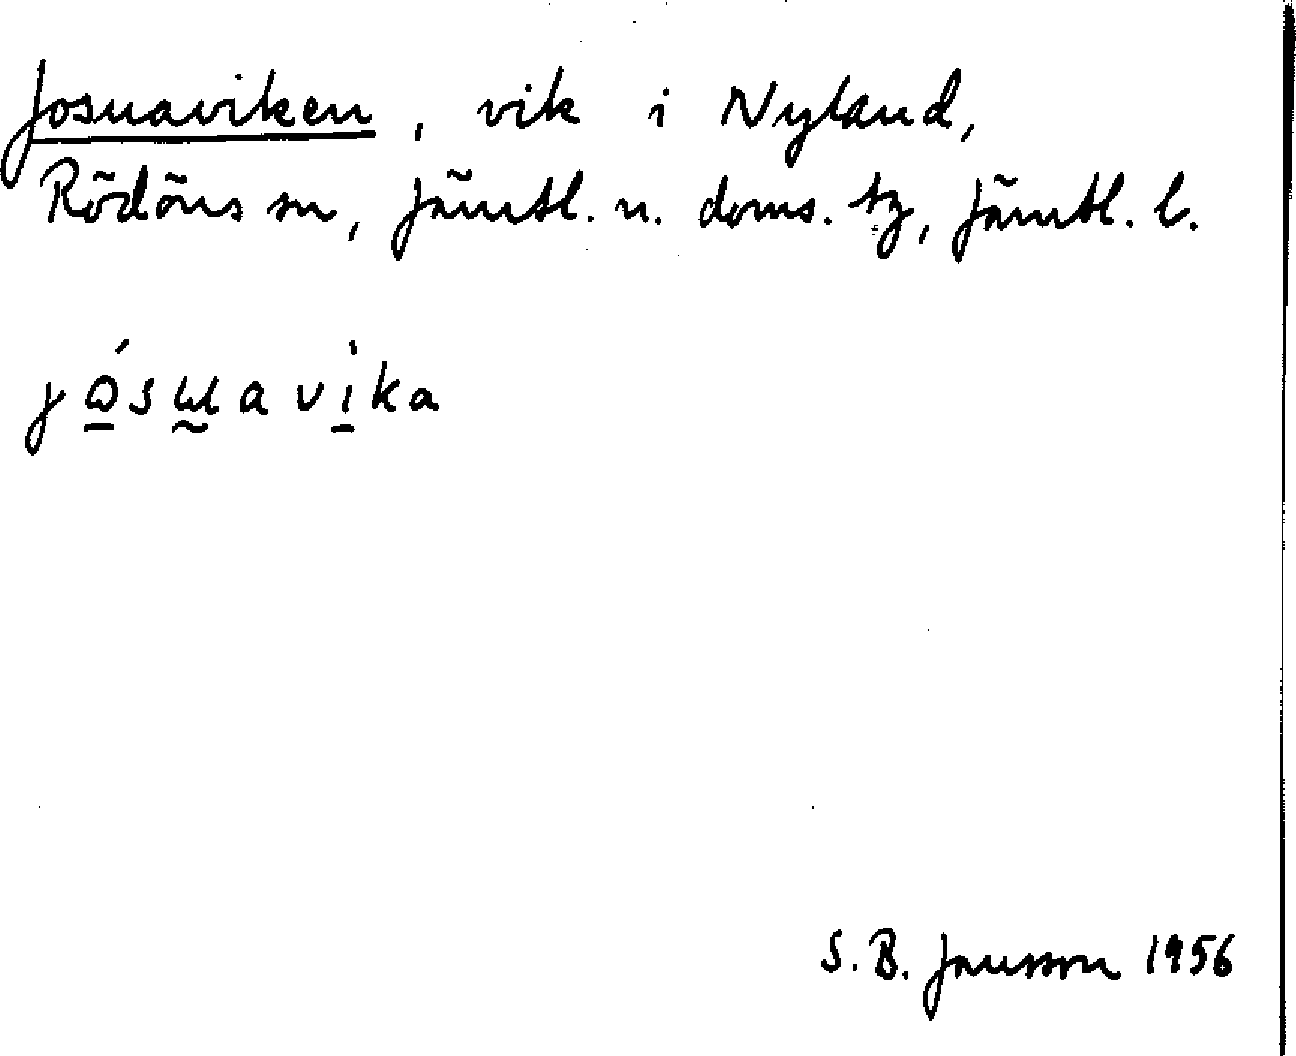 Josuaviken, vik i Nyland,
Rödöns sn, Jämtl. n. doms. tg, Jämtl. l.
jώ̱sɯ̰avi̱̍ka
S. B. Jansson 1956